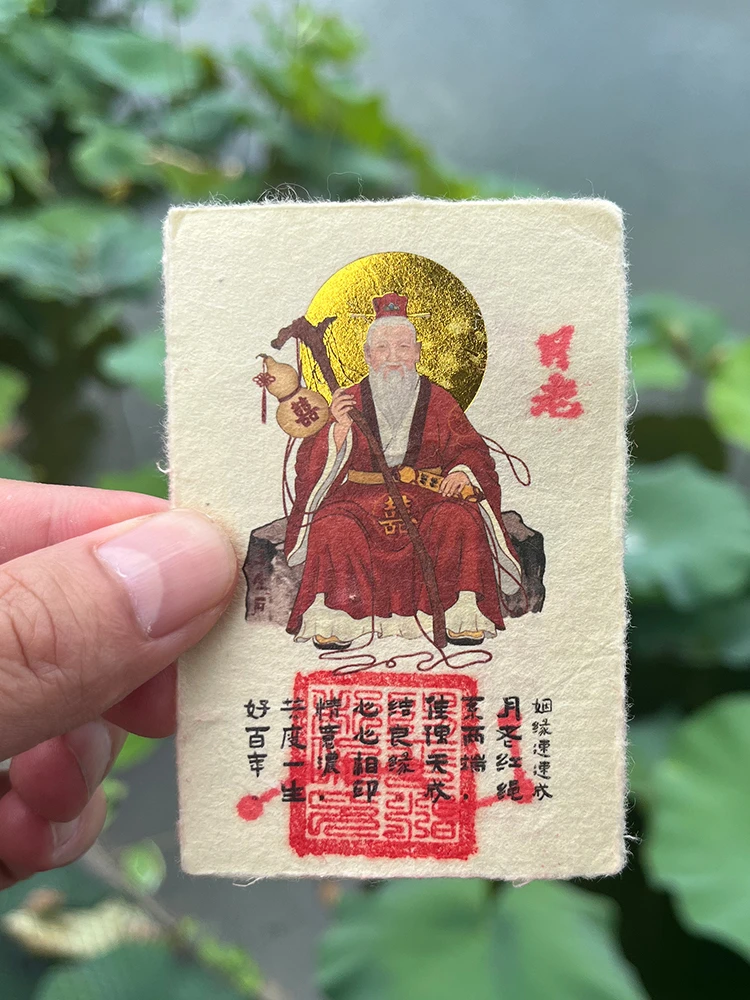 月老
囍
囍
姻缘
成
月老红绳
系两端.
天成
结良缘.
心心相印
情意浓.
共度一生
好百年.